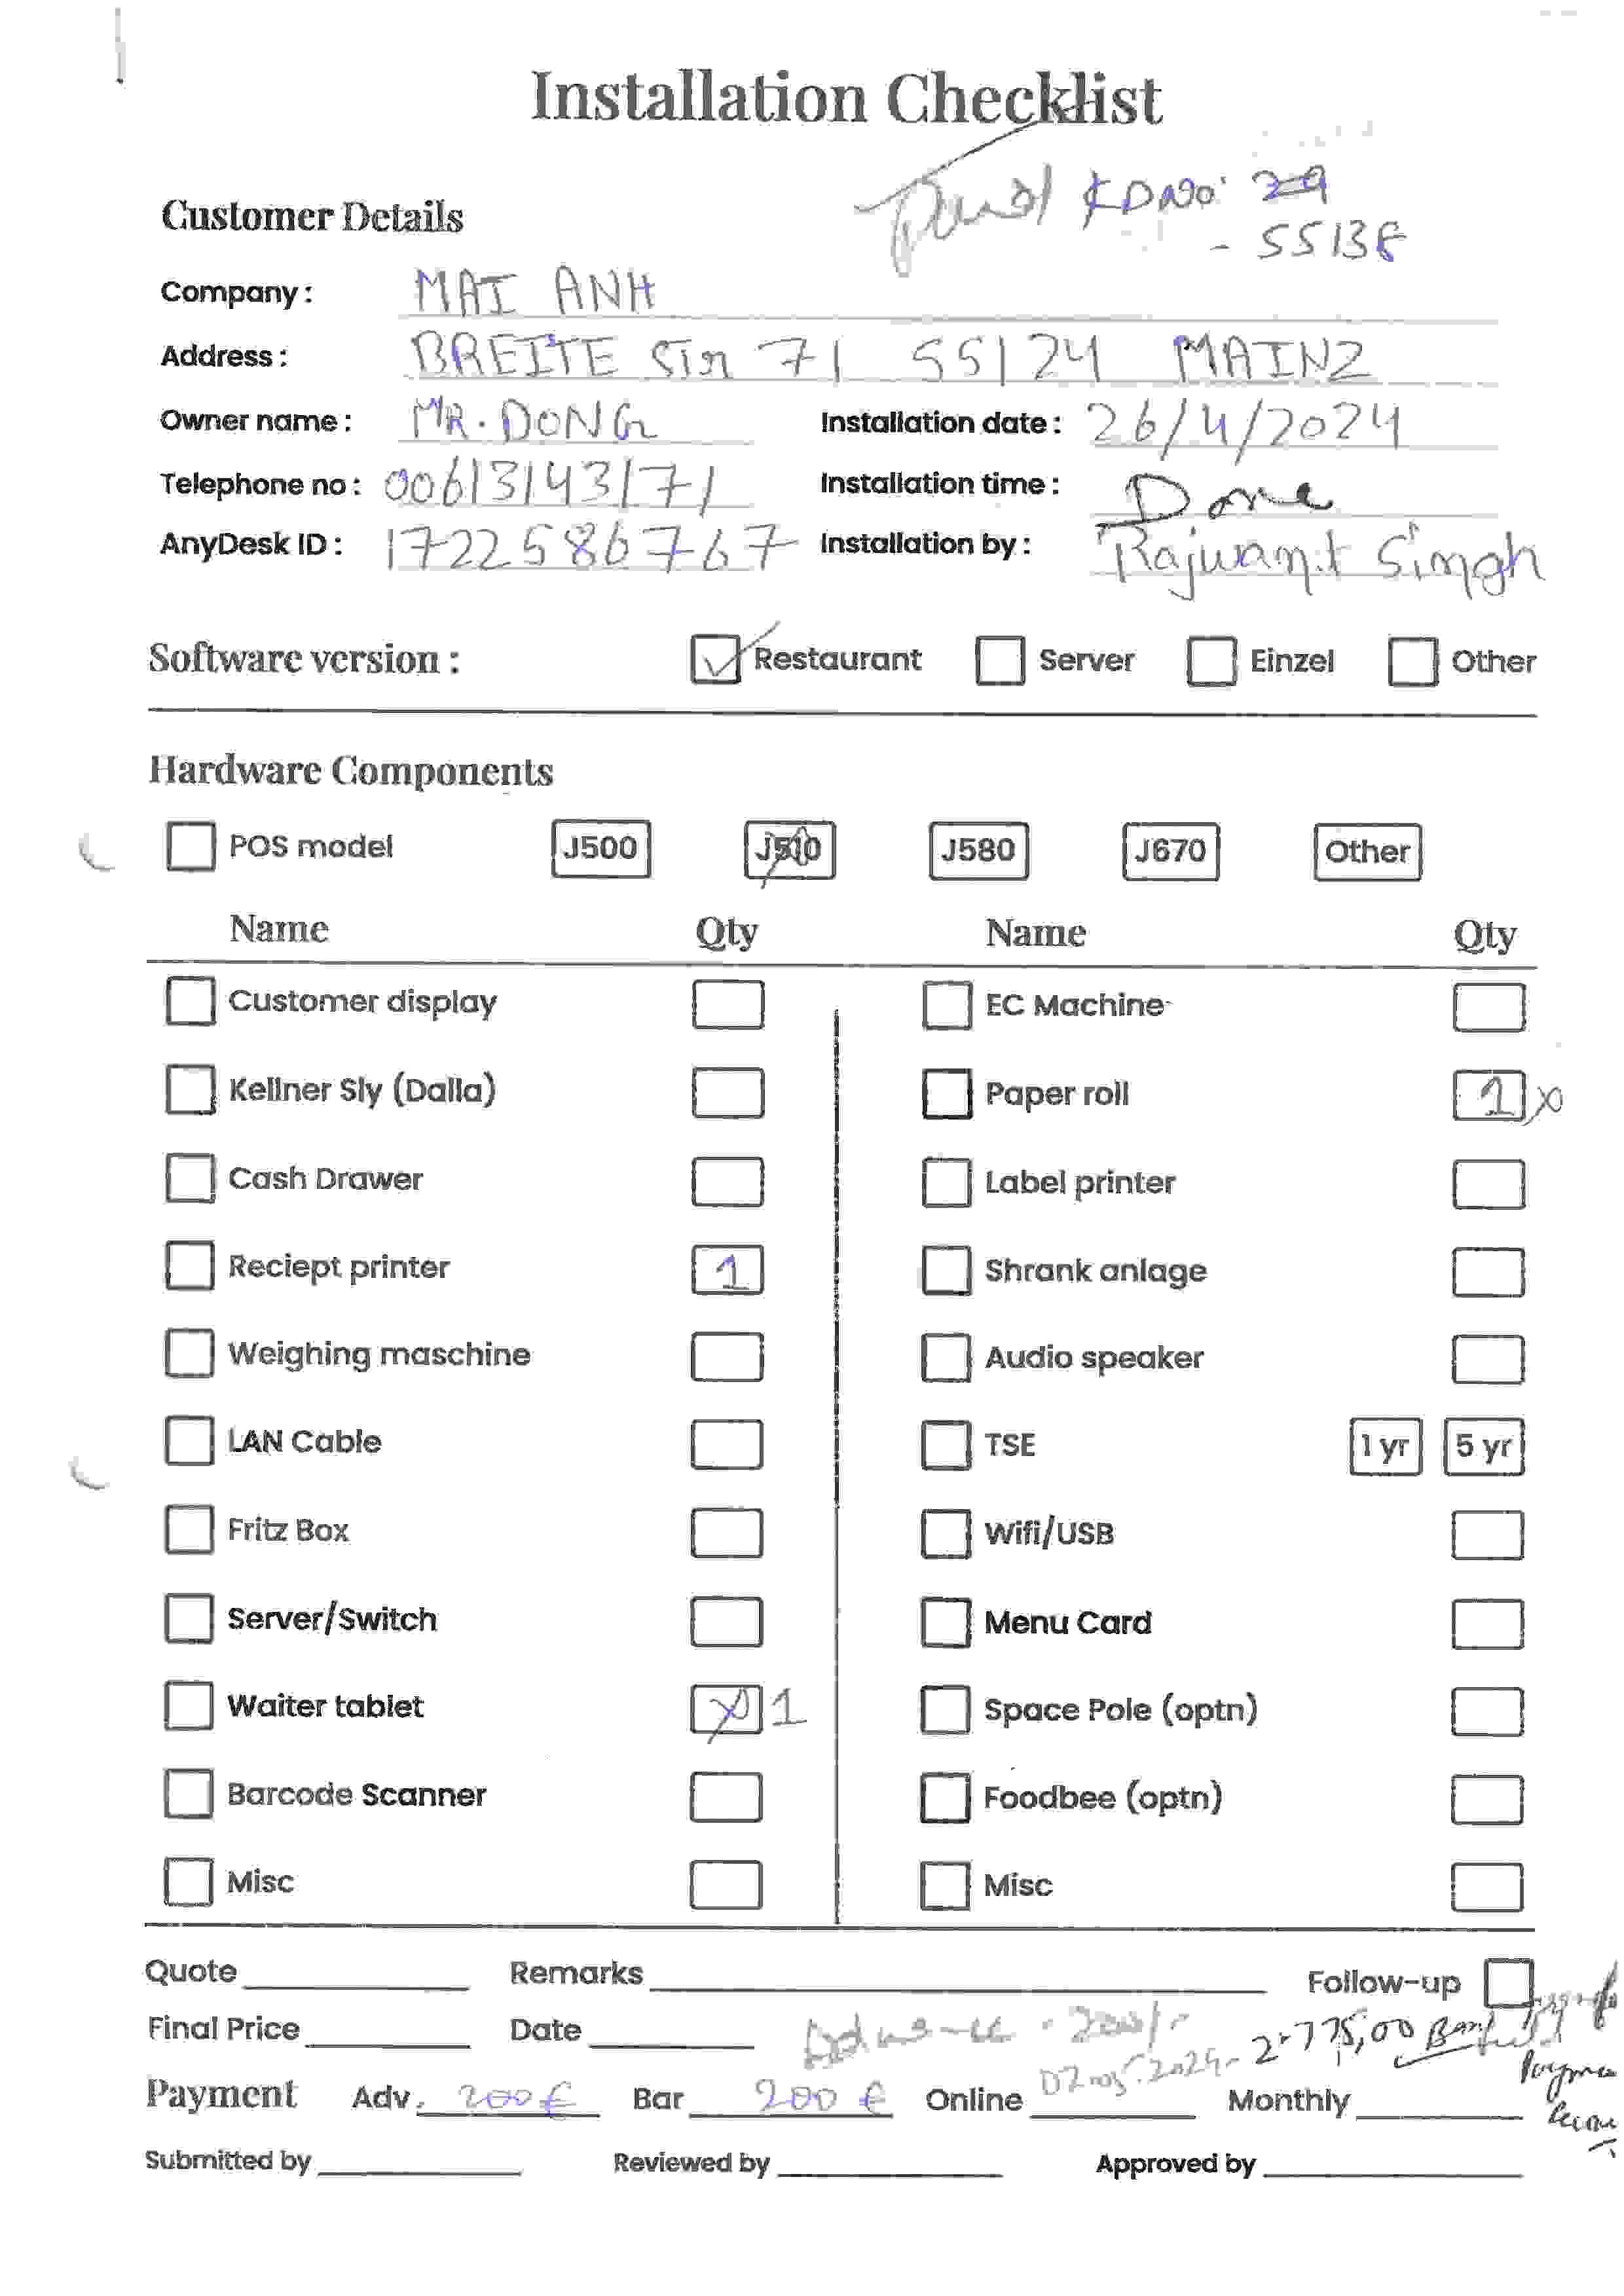 Installation Checklist
KDNo: 29
Customer Details
- 55138
Company : MAI ANH
Address : BREITE Str 71 55124 MAINZ
Owner name : MR. DONG Installation date : 26/4/2024
Telephone no : 00613143171 Installation time : Done
AnyDesk ID : 1722586767 Installation by : Singh
Software version : Restaurant Server Einzel Other
Hardware Components
POS model J500 J510 J580 J670 Other
Name Qty Name Qty
Customer display EC Machine
Kellner Sly (Dalla) Paper roll 1x
Cash Drawer Label printer
Reciept printer 1 Shrank anlage
Weighing maschine Audio speaker
LAN Cable TSE 1 yr 5 yr
Fritz Box Wifi/USB
Server/Switch Menu Card
Waiter tablet 1 Space Pole (optn)
Barcode Scanner Foodbee (optn)
Misc Misc
Quote Remarks Follow-up
Final Price Date 2.775,00
Payment Adv. 200 € Bar 200 € Online Monthly
Submitted by Reviewed by Approved by